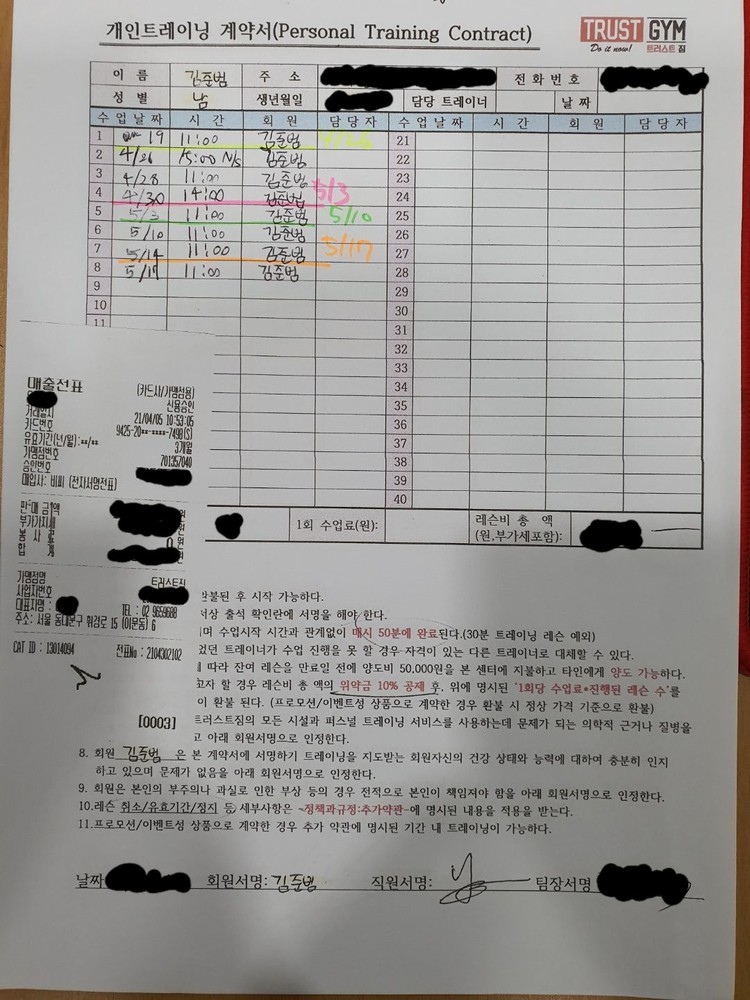 개인트레이닝 계약서(Personal Training Contract)
TRUST GYM
Do it now! 트러스트 짐
이 름 김준범 주 소 전 화 번 호
성 별 남 생년월일 담당 트레이너 날 짜
수 업 날 짜 시 간 회 원 담 당 자 수 업 날 짜 시 간 회 원 담 당 자
1 19 11:00 김준범 21
2 4/26 15:00 N/s 김준범 22
3 4/28 11:00 김준범 23
4 4/30 14:00 김준범 5/3 24
5 5/3 11:00 김준범 5/10 25
6 5/10 11:00 김준범 26
7 5/14 11:00 김준범 5/17 27
8 5/17 11:00 김준범 28
9 29
10 30
11 31
32
33
34
35
36
37
38
39
40
1회 수업료(원): 레슨비 총 액
(원,부가세포함):
매출전표 (카드사/가맹점용)
신용승인
거래일시 21/04/05 10:53:05
카드번호 9425-20**-****-7498(S)
유효기간(년/월):**/** 3개월
가맹점번호 701357040
승인번호
매입사: 비씨 (전자서명전표)
판매금액 원
부가가치세 원
봉 사 료 0 원
합 계 원
가맹점명 트러스트짐
사업자번호
대표자명 : TEL : 02 9659688
주소: 서울 동대문구 휘경로 15 (이문동) 6
CAT ID : 13014094 전표No : 2104302102
[0003]
환불된 후 시작 가능하다.
너상 출석 확인란에 서명을 해야 한다.
며 수업시작 시간과 관계없이 매시 50분에 완료된다.(30분 트레이닝 레슨 예외)
었던 트레이너가 수업 진행을 못 할 경우 자격이 있는 다른 트레이너로 대체할 수 있다.
따라 잔여 레슨을 만료일 전에 양도비 50,000원을 본 센터에 지불하고 타인에게 양도 가능하다.
고자 할 경우 레슨비 총 액의 위약금 10% 공제 후, 위에 명시된 '1회당 수업료*진행된 레슨 수'를
이 환불 된다. (프로모션/이벤트성 상품으로 계약한 경우 환불 시 정상 가격 기준으로 환불)
트러스트짐의 모든 시설과 퍼스널 트레이닝 서비스를 사용하는데 문제가 되는 의학적 근거나 질병을
고 아래 회원서명으로 인정한다.
8. 회원 김준범 은 본 계약서에 서명하기 트레이닝을 지도받는 회원자신의 건강 상태와 능력에 대하여 충분히 인지
하고 있으며 문제가 없음을 아래 회원서명으로 인정한다.
9. 회원은 본인의 부주의나 과실로 인한 부상 등의 경우 전적으로 본인이 책임져야 함을 아래 회원서명으로 인정한다.
10.레슨 취소/유효기간/정지 등 세부사항은 -정책과규정:추가약관-에 명시된 내용을 적용을 받는다.
11.프로모션/이벤트성 상품으로 계약한 경우 추가 약관에 명시된 기간 내 트레이닝이 가능하다.
날짜 회원서명: 김준범 직원서명: 팀장서명